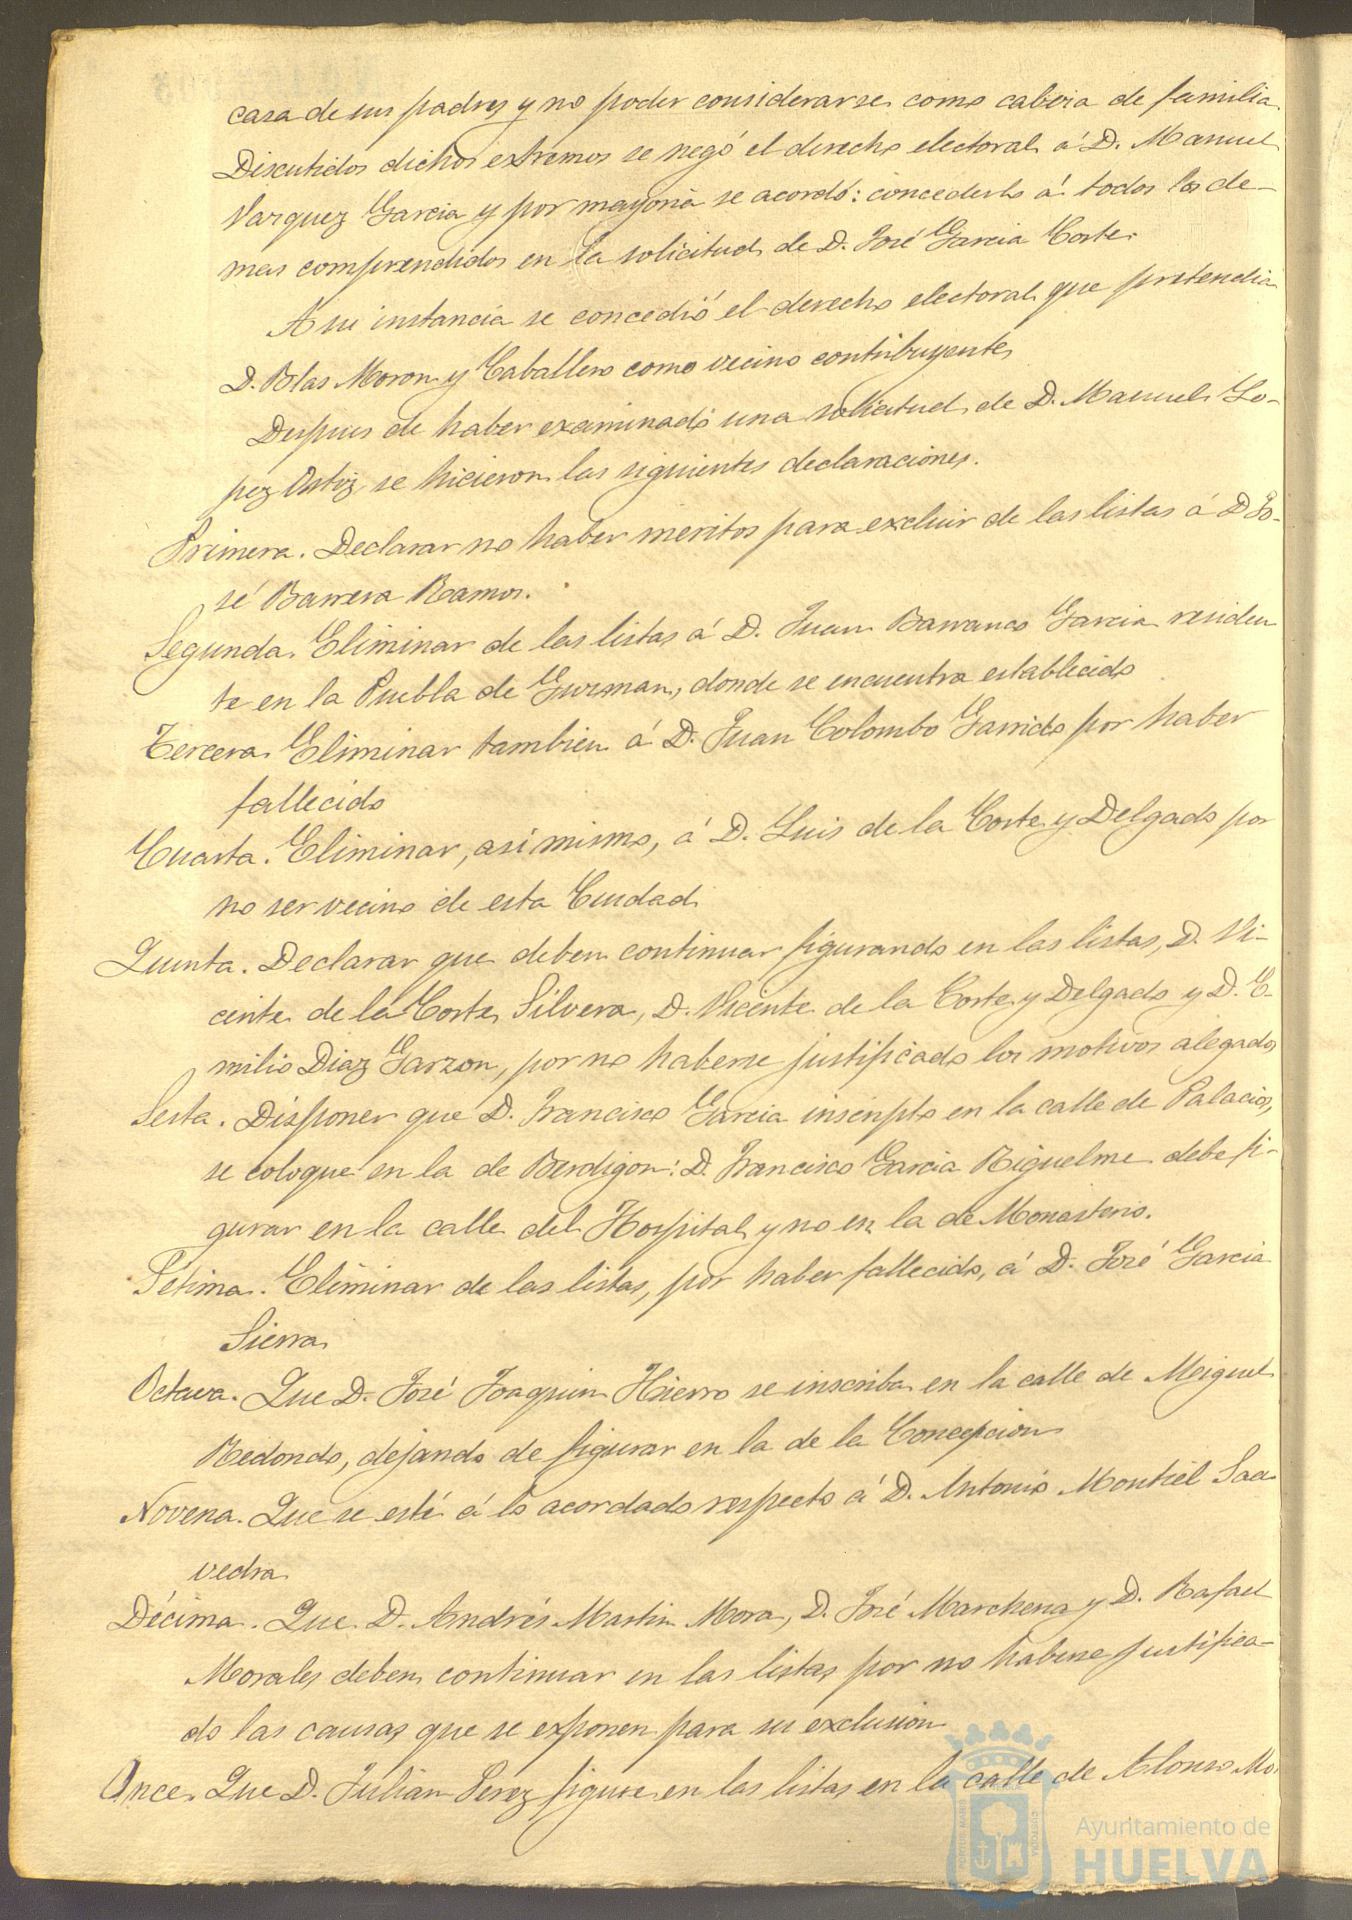 casa de sus padres y no poder considerarse como cabeza de familia
Discutidos dichos extremos se negó el derecho electoral á D. Manuel
Vazquez Garcia y por mayoria se acordó: concederlo á todos los de-
mas comprendidos en la solicitud de D. José Garcia Corte.
A su instancia se concedió el derecho electoral que pretendia
D. Blas Moron y Caballero como vecino contribuyente
Despues de haber examinado una solicitud de D. Manuel Lo-
pez Ortiz se hicieron las siguientes declaraciones.
Primera. Declarar no haber meritos para excluir de las listas á D Jo-
sé Barrera Ramos.
Segunda. Eliminar de las listas á D. Juan Barranco Garcia residen
te en la Puebla de Guzman, donde se encuentra establecido
Tercera. Eliminar tambien á D. Juan Colombo Garrido por haber
fallecido
Cuarta. Eliminar, asi mismo, á D. Luis de la Corte y Delgado por
no ser vecino de esta Ciudad.
Quinta. Declarar que deben continuar figurando en las listas, D. Vi-
cente de la Corte Silvera, D. Vicente de la Corte y Delgado y D. E-
milio Diaz Garzon, por no haberse justificado los motivos alegados
Sesta. Disponer que D. Francisco Garcia inscripto en la calle de Palacios,
se coloque en la de Berdigon: D. Francisco Garcia Riguelme debe fi-
gurar en la calle del Hospital y no en la de Monasterio.
Setima. Eliminar de las listas, por haber fallecido, á D. José Garcia
Sierra
Octava. Que D. José Joaquin Hierro se inscriba en la calle de Miguel
Redondo, dejando de figurar en la de la Concepcion
Novena. Que se esté á lo acordado respecto á D. Antonio Montiel Saa
vedra
Décima. Que D. Andrés Martin Mora, D. José Marchena y D. Rafael
Morales deben continuar en las listas por no haberse justifica-
do las causas que se exponen para su exclusion
Once. Que D. Julian Perez figure en las listas en la calle de Alonso Mo
Ayuntamiento de
HUELVA